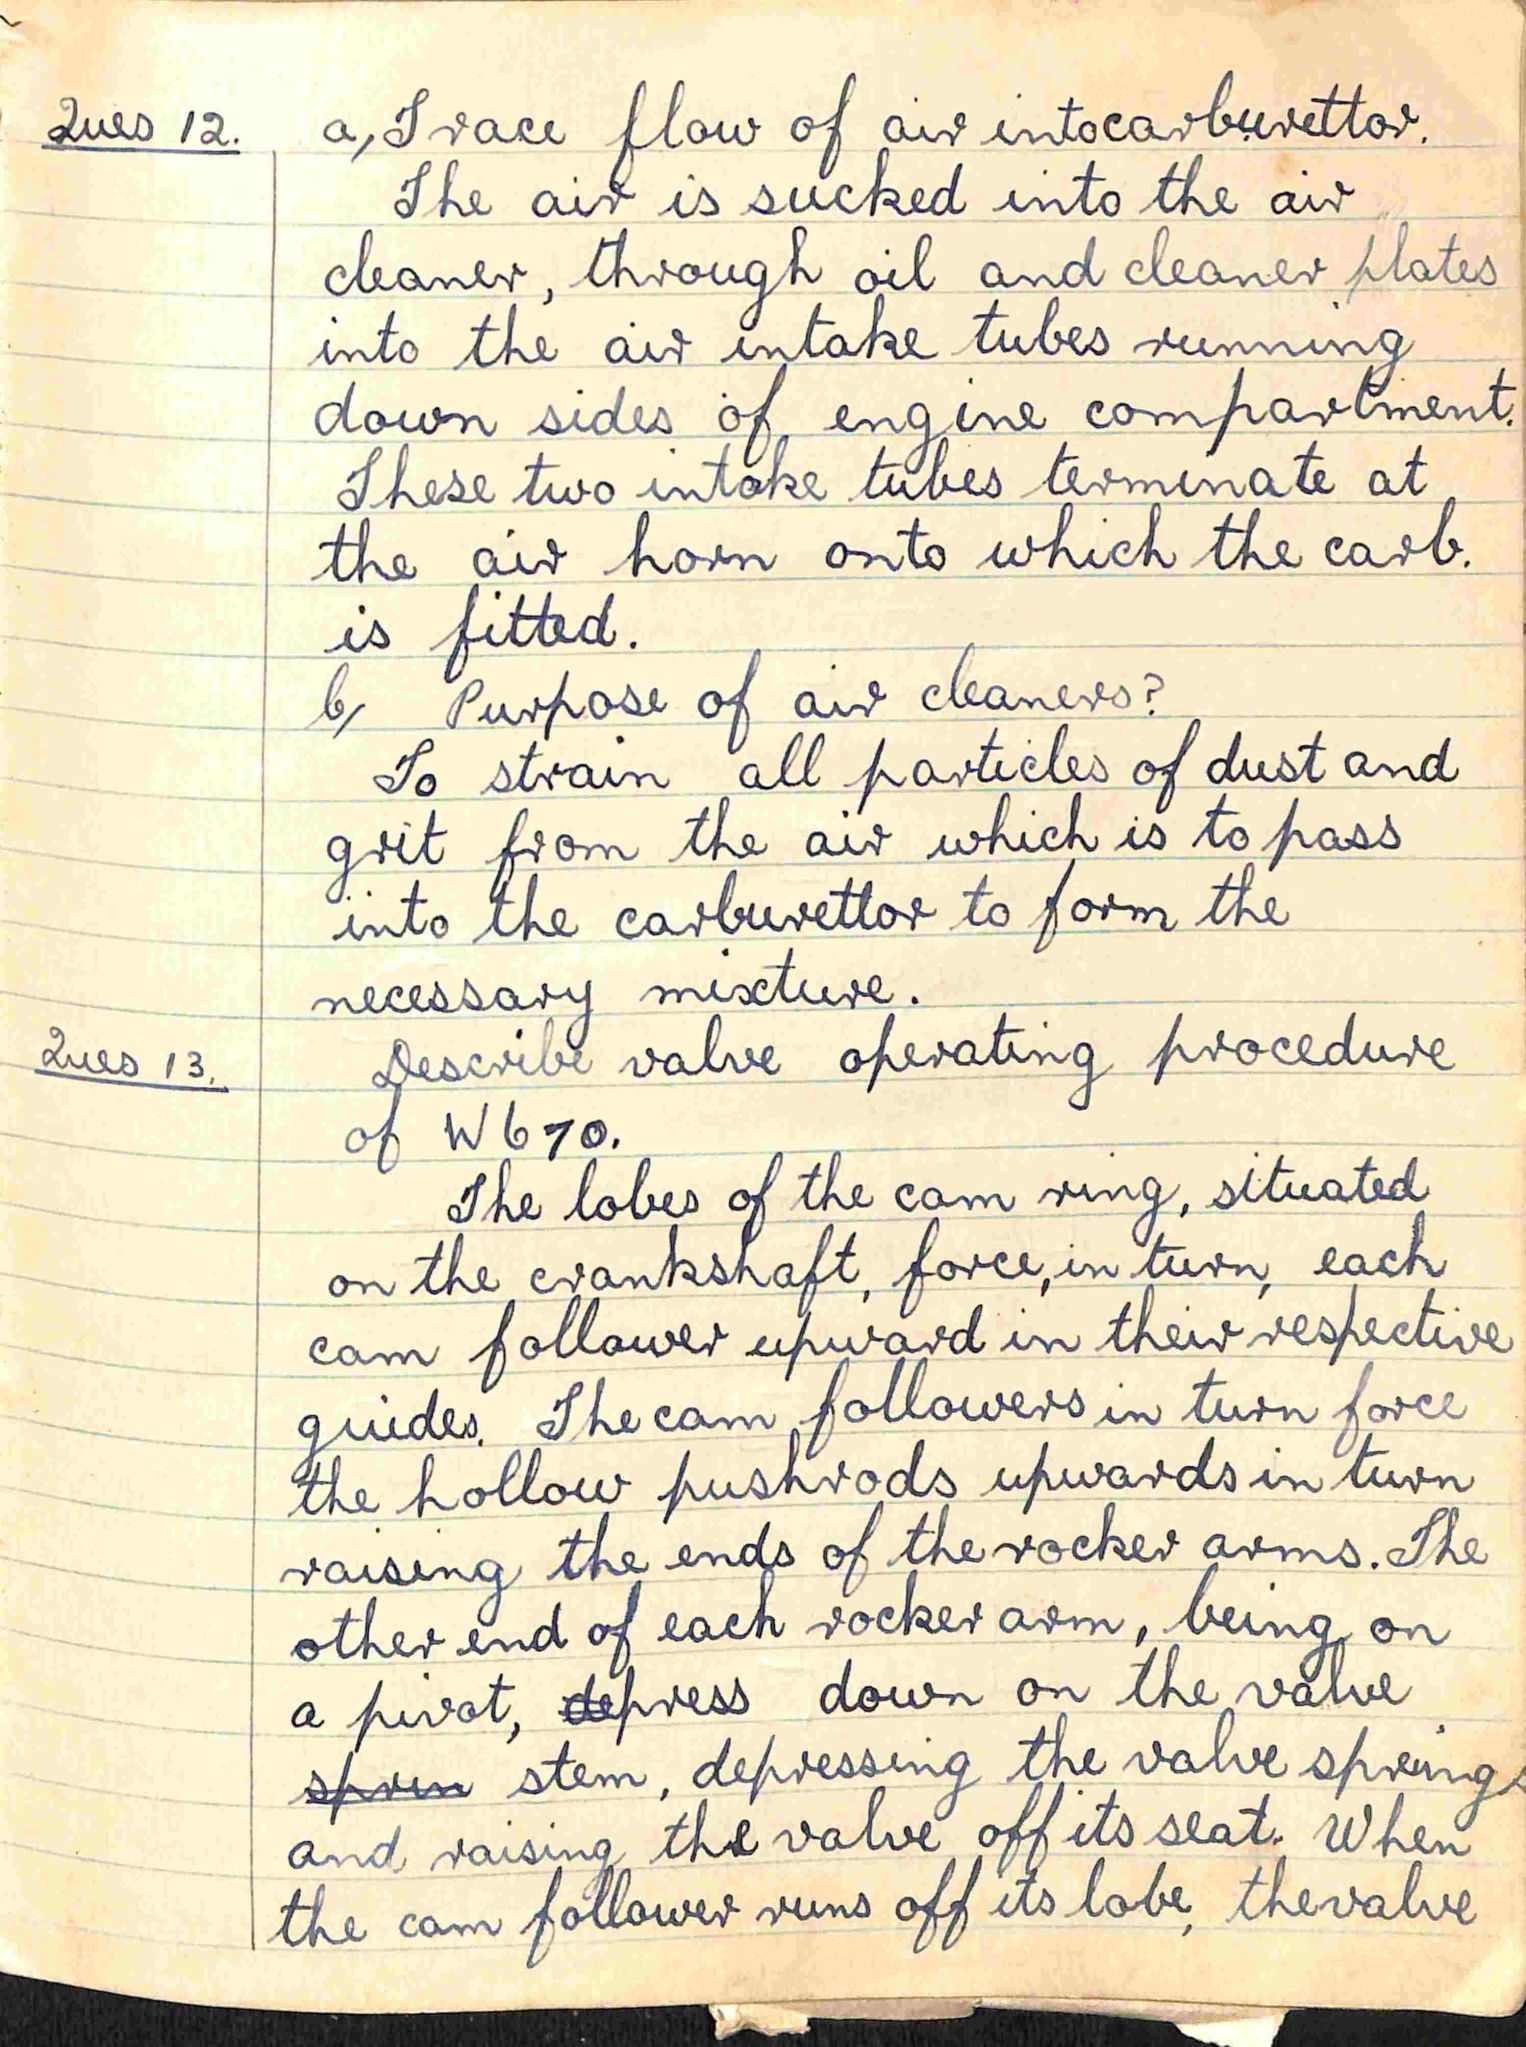 Ques 12. a, Trace flow of air into carburettor.
The air is sucked into the air
cleaner, through oil and cleaner plates
into the air intake tubes running
down sides of engine compartment.
These two intake tubes terminate at
the air horn onto which the carb.
is fitted.
b, Purpose of air cleaners?
To strain all particles of dust and
grit from the air which is to pass
into the carburettor to form the
necessary mixture.
Ques 13. Describe valve operating procedure
of W670.
The lobes of the cam ring, situated
on the crankshaft, force, in turn, each
cam follower upward in their respective
guides. The cam followers in turn force
the hollow pushrods upwards in turn
raising the ends of the rocker arms. The
other end of each rocker arm, being on
a pivot, depress down on the valve
sprin stem, depressing the valve springs
and raising the valve off its seat. When
the cam follower runs off its lobe, the valve